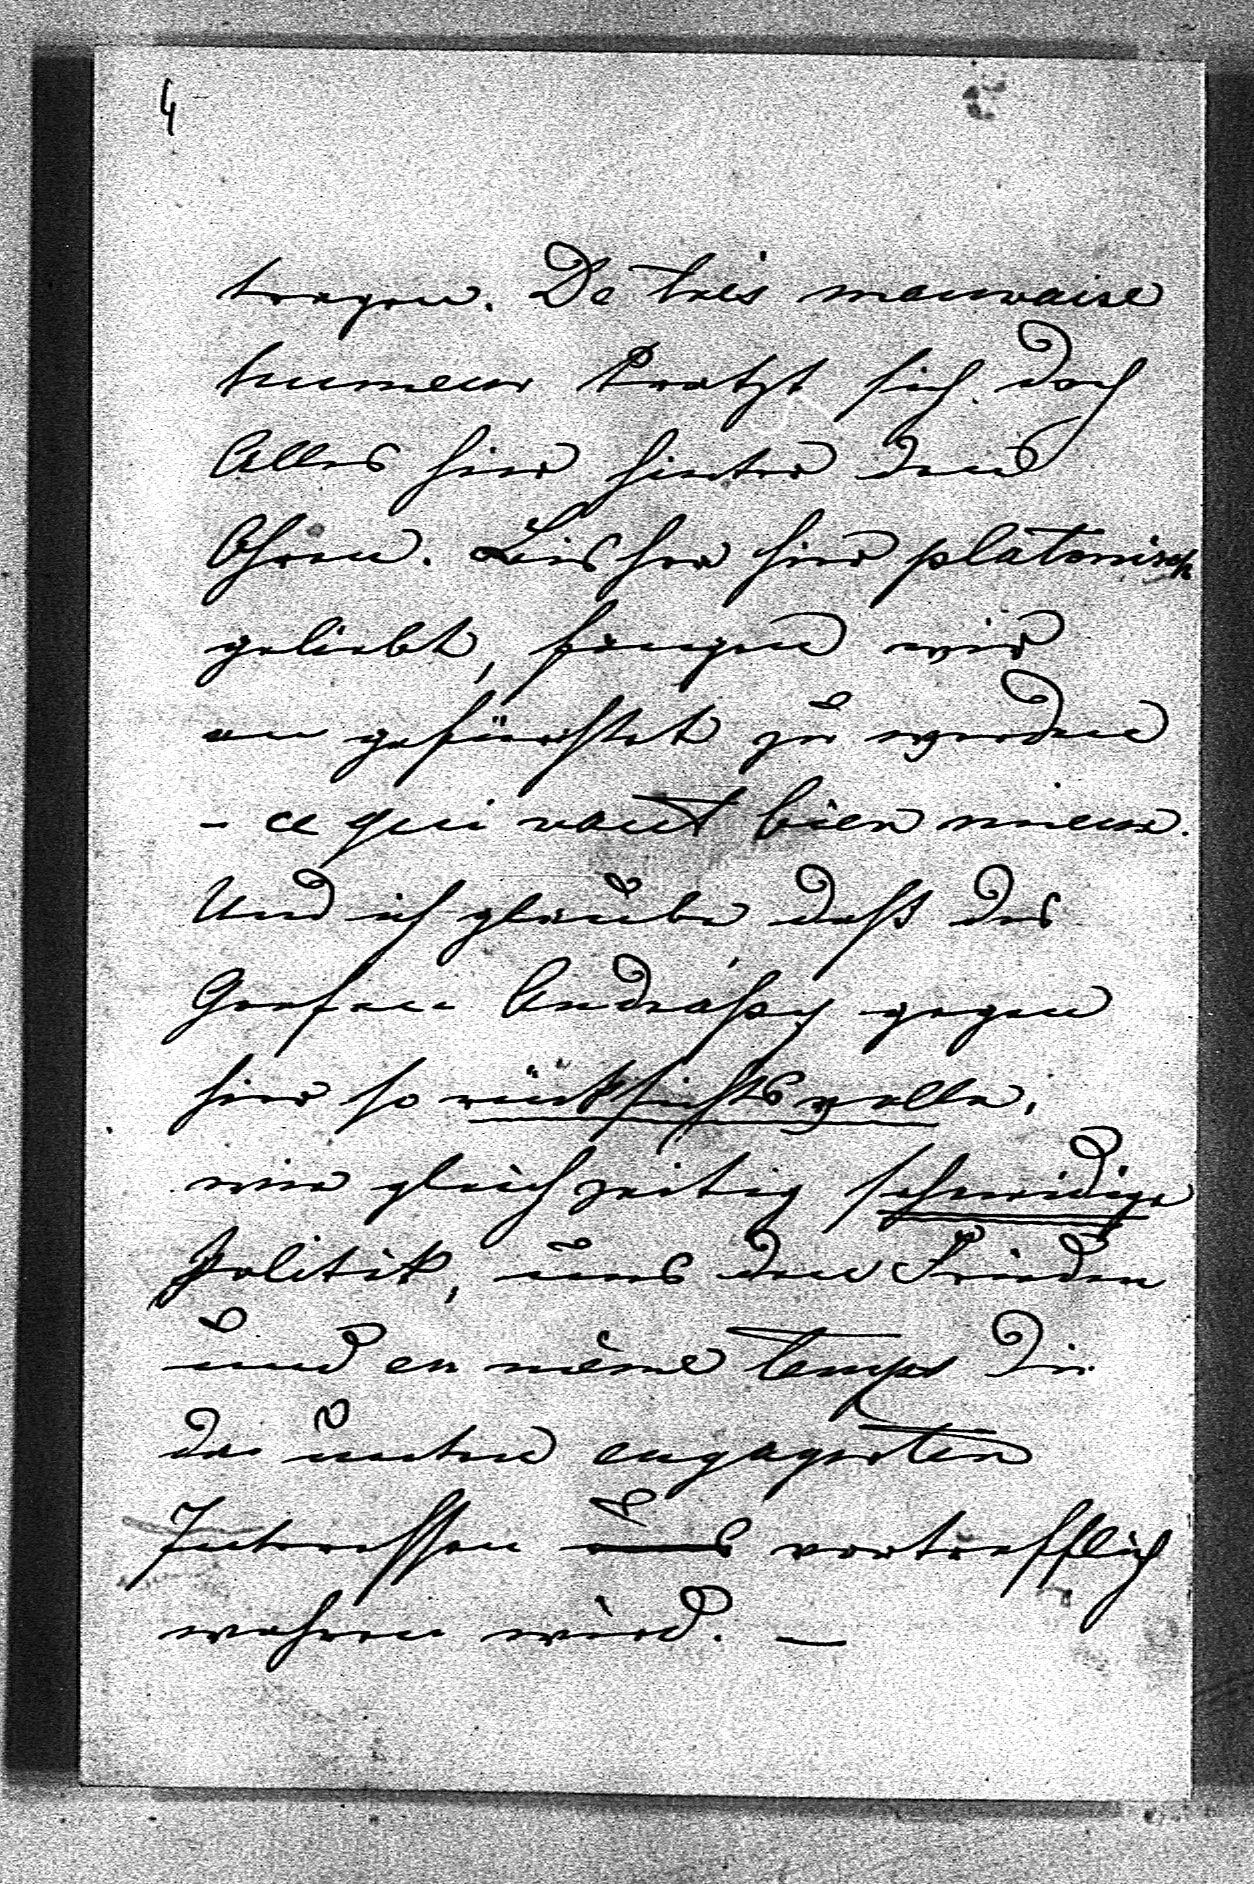 4
tragen. De très mauvaise
humeur kratzt sich doch
Alles hier hinter den
Ohren. Bisher hier platonisch
geliebt, fangen wir
an gefürchtet zu werden
- ce qui vaut bien mieux.
Und ich glaube daß des
Grafen Andrássy gegen
hier so rücksichtsvolle,
wie gleichzeitig schneidige
Politik, uns den Frieden
und en même temps die
da unten engagirten
Interessen uns vortrefflich
wahren wird. —